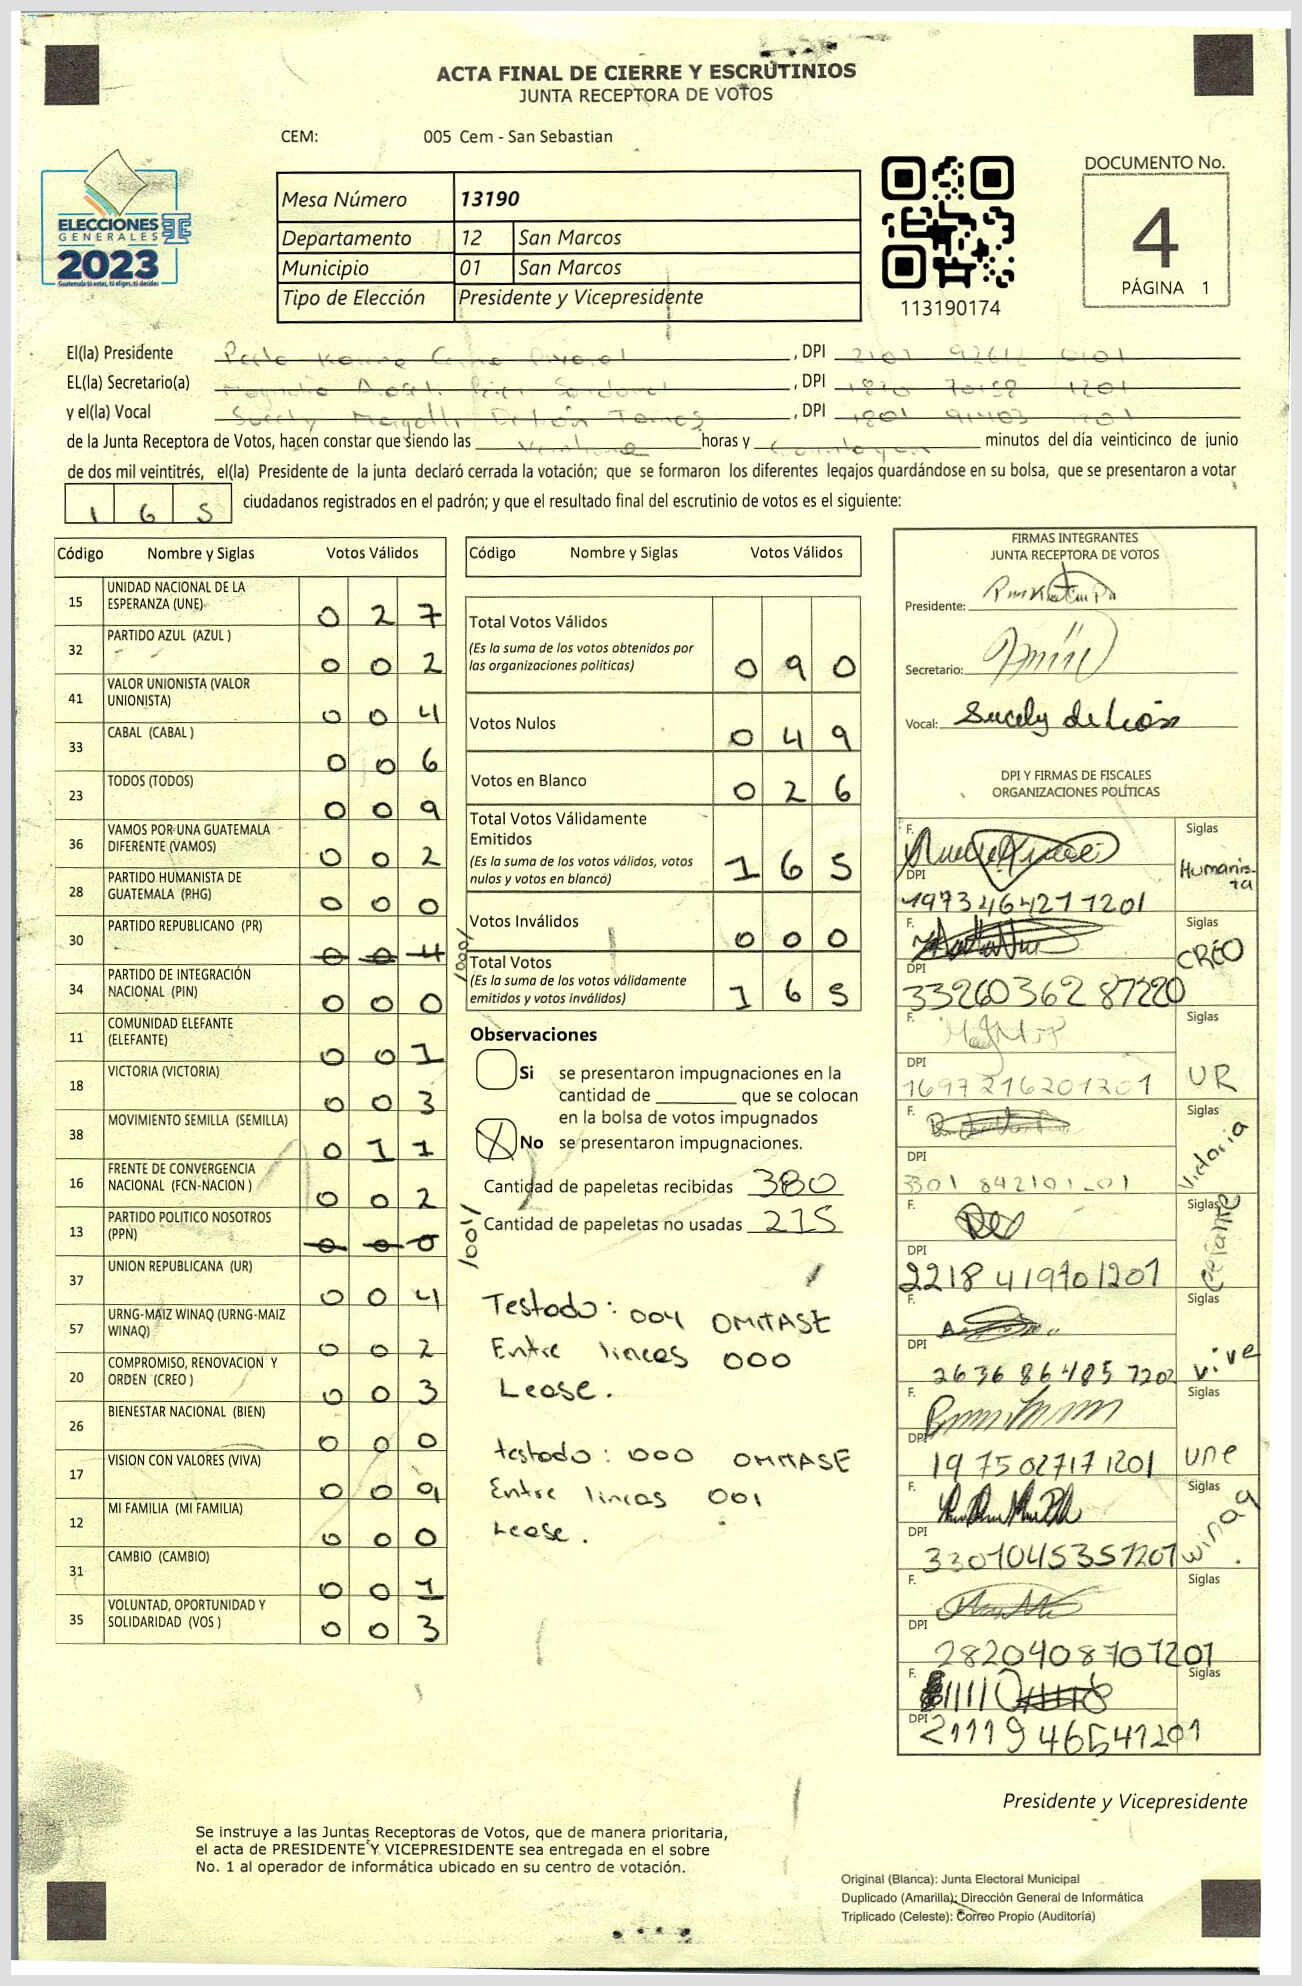 ACTA FINAL DE CIERRE Y ESCRUTINIOS
JUNTA RECEPTORA DE VOTOS
CEM: 005 Cem - San Sebastian
ELECCIONES
GENERALES
2023
Guatemala tú votas, tú eliges, tú decides
Mesa Número 13190
Departamento 12 San Marcos
Municipio 01 San Marcos
Tipo de Elección Presidente y Vicepresidente
113190174
DOCUMENTO No.
4
PÁGINA 1
El(la) Presidente , DPI
EL(la) Secretario(a) , DPI
y el(la) Vocal Sucely , DPI
de la Junta Receptora de Votos, hacen constar que siendo las horas y minutos del día veinticinco de junio
de dos mil veintitrés, el(la) Presidente de la junta declaró cerrada la votación; que se formaron los diferentes legajos guardándose en su bolsa, que se presentaron a votar
165 ciudadanos registrados en el padrón; y que el resultado final del escrutinio de votos es el siguiente:
Código Nombre y Siglas Votos Válidos
15 UNIDAD NACIONAL DE LA ESPERANZA (UNE) 0 2 7
32 PARTIDO AZUL (AZUL ) 0 0 2
41 VALOR UNIONISTA (VALOR UNIONISTA) 0 0 4
33 CABAL (CABAL ) 0 0 6
23 TODOS (TODOS) 0 0 9
36 VAMOS POR UNA GUATEMALA DIFERENTE (VAMOS) 0 0 2
28 PARTIDO HUMANISTA DE GUATEMALA (PHG) 0 0 0
30 PARTIDO REPUBLICANO (PR) 0 0 4 /000/
34 PARTIDO DE INTEGRACIÓN NACIONAL (PIN) 0 0 0
11 COMUNIDAD ELEFANTE (ELEFANTE) 0 0 1
18 VICTORIA (VICTORIA) 0 0 3
38 MOVIMIENTO SEMILLA (SEMILLA) 0 1 1
16 FRENTE DE CONVERGENCIA NACIONAL (FCN-NACION ) 0 0 2
13 PARTIDO POLITICO NOSOTROS (PPN) 0 0 0 /001/
37 UNION REPUBLICANA (UR) 0 0 4
57 URNG-MAIZ WINAQ (URNG-MAIZ WINAQ) 0 0 2
20 COMPROMISO, RENOVACION Y ORDEN (CREO ) 0 0 3
26 BIENESTAR NACIONAL (BIEN) 0 0 0
17 VISION CON VALORES (VIVA) 0 0 9
12 MI FAMILIA (MI FAMILIA) 0 0 0
31 CAMBIO (CAMBIO) 0 0 1
35 VOLUNTAD, OPORTUNIDAD Y SOLIDARIDAD (VOS ) 0 0 3
Código Nombre y Siglas Votos Válidos
Total Votos Válidos 0 9 0
(Es la suma de los votos obtenidos por
las organizaciones políticas)
Votos Nulos 0 4 9
Votos en Blanco 0 2 6
Total Votos Válidamente
Emitidos 1 6 5
(Es la suma de los votos válidos, votos
nulos y votos en blanco)
Votos Inválidos 0 0 0
Total Votos 1 6 5
(Es la suma de los votos válidamente
emitidos y votos inválidos)
Observaciones
Si se presentaron impugnaciones en la
cantidad de ______ que se colocan
en la bolsa de votos impugnados
No se presentaron impugnaciones.
Cantidad de papeletas recibidas 380
Cantidad de papeletas no usadas 215
Testado: 004 OMITASE
Entre lineas 000
Lease.
testado: 000 OMITASE
Entre lineas 001
Lease.
FIRMAS INTEGRANTES
JUNTA RECEPTORA DE VOTOS
Presidente:
Secretario:
Vocal: Sucely de León
DPI Y FIRMAS DE FISCALES
ORGANIZACIONES POLÍTICAS
F. Siglas Humanista
DPI 1973464271201
F. Siglas CREO
DPI
F. Siglas UR
DPI 1697216201201
F. Siglas Victoria
DPI
F. Siglas
DPI 2218419701201
F. Siglas vive
DPI
F. Siglas une
DPI 1975027171201
F. Siglas winaq
DPI 3301045351201
F. Siglas
DPI 2820408701201
F. Siglas
DPI 2111946541201
Presidente y Vicepresidente
Se instruye a las Juntas Receptoras de Votos, que de manera prioritaria,
el acta de PRESIDENTE Y VICEPRESIDENTE sea entregada en el sobre
No. 1 al operador de informática ubicado en su centro de votación.
Original (Blanca): Junta Electoral Municipal
Duplicado (Amarilla): Dirección General de Informática
Triplicado (Celeste): Correo Propio (Auditoría)